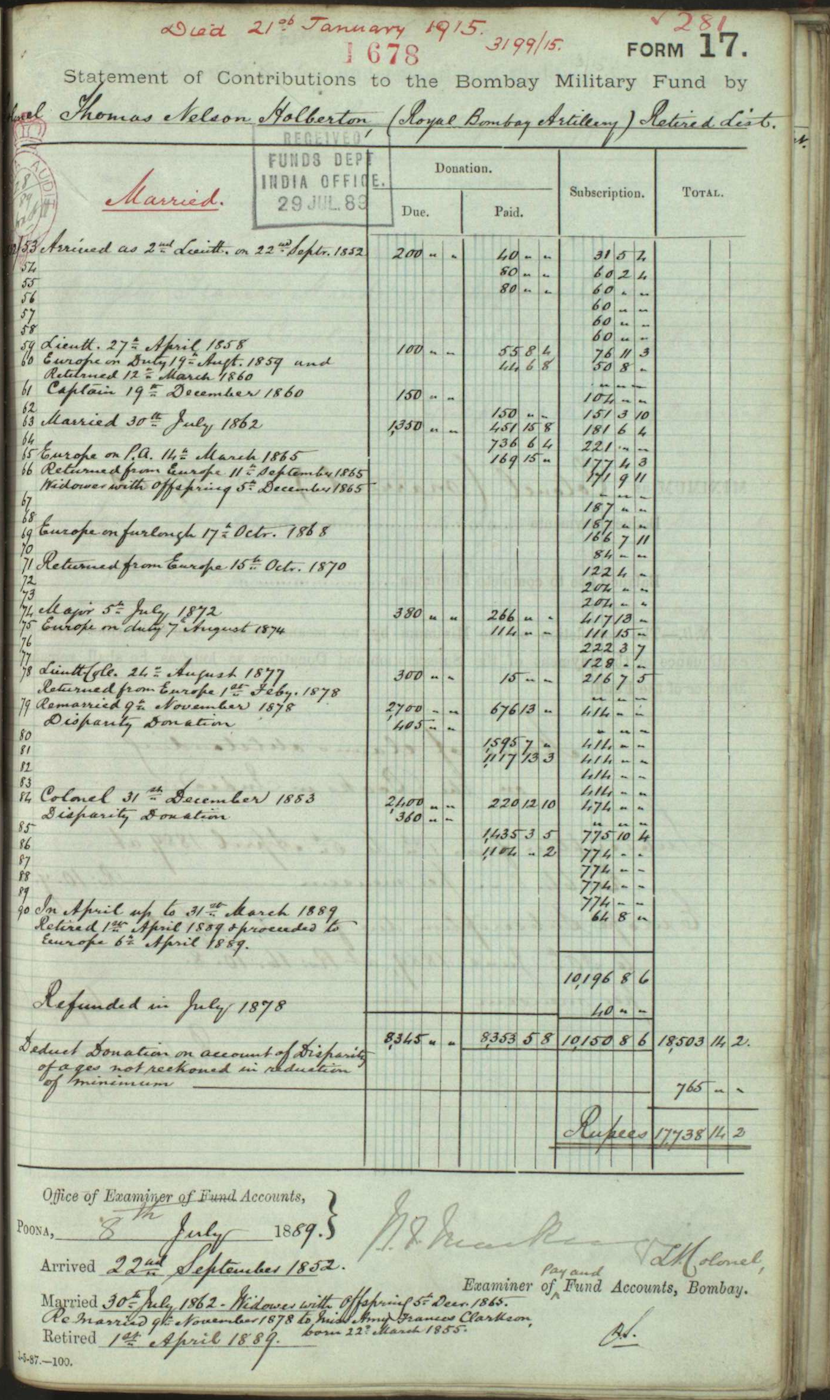 Died 21st January 1915.
281
1678
3199/15.
FORM 17.
Statement of Contributions to the Bombay Military Fund by
Thomas Nelson Holberton, (Royal Bombay Artillery) Retired List.
RECEIVED
FUNDS DEPT
INDIA OFFICE.
29 JUL. 89
AUDIT
Married.
Donation.
Due. Paid. Subscription. TOTAL.
53 Arrived as 2nd Lieutt. on 22nd Septr. 1852 200 " " 40 " " 31 5 4
54 80 " " 60 2 4
55 80 " " 60 " "
56 60 " "
57 60 " "
58 60 " "
59 Lieutt. 27th April 1858 100 " " 55 8 4 76 11 3
60 Europe on Duty 19th Augt. 1859 and 44 6 8 50 8 "
Returned 12th March 1860 " " "
61 Captain 19th December 1860 150 " " 104 " "
62 150 " " 151 3 10
63 Married 30th July 1862 1,350 " " 451 15 8 181 6 4
64 736 6 4 221 " "
65 Europe on P.A. 14th March 1865 169 15 " 177 4 3
66 Returned from Europe 11th September 1865 171 9 11
Widower with Offspring 5th December 1865 " " "
67 187 " "
68 187 " "
69 Europe on furlough 17th Octr. 1868 166 7 11
70 84 " "
71 Returned from Europe 15th Octr. 1870 122 4 "
72 204 " "
73 204 " "
74 Major 5th July 1872 380 " " 266 " " 417 13 "
75 Europe on duty 7th August 1874 114 " " 111 15 "
76 222 3 7
77 128 " "
78 Lieutt Col. 24th August 1877 300 " " 15 " " 216 7 5
Returned from Europe 1st Feby. 1878 " " "
79 Remarried 9th November 1878 2,700 " " 676 13 " 414 " "
Disparity Donation 405 " " " " "
80 1,595 7 " 414 " "
81 1,117 13 3 414 " "
82 414 " "
83 414 " "
84 Colonel 31st December 1883 2,400 " " 220 12 10 474 " "
Disparity Donation 360 " " " " "
85 1,435 3 5 775 10 4
86 1,104 " 2 774 " "
87 774 " "
88 774 " "
89 774 " "
90 In April up to 31st March 1889 64 8 "
Retired 1st April 1889 & proceeded to
Europe 6th April 1889.
10,196 8 6
Refunded in July 1878 40 " "
8,345 " " 8,353 5 8 10,150 8 6 18,503 14 2.
Deduct Donation on account of Disparity
of ages not reckoned in reduction
of minimum 765 " "
Rupees 17,738 14 2
Office of Examiner of Fund Accounts,
POONA, 8th July 1889.
Lt Colonel,
Arrived 22nd September 1852.
Examiner of Pay and Fund Accounts, Bombay.
Married 30th July 1862 - Widower with Offspring 5th Decr. 1865.
Remarried 9th November 1878 to Miss Amy Frances Clarkson,
born 22d March 1855.
Retired 1st April 1889.
87.—100.